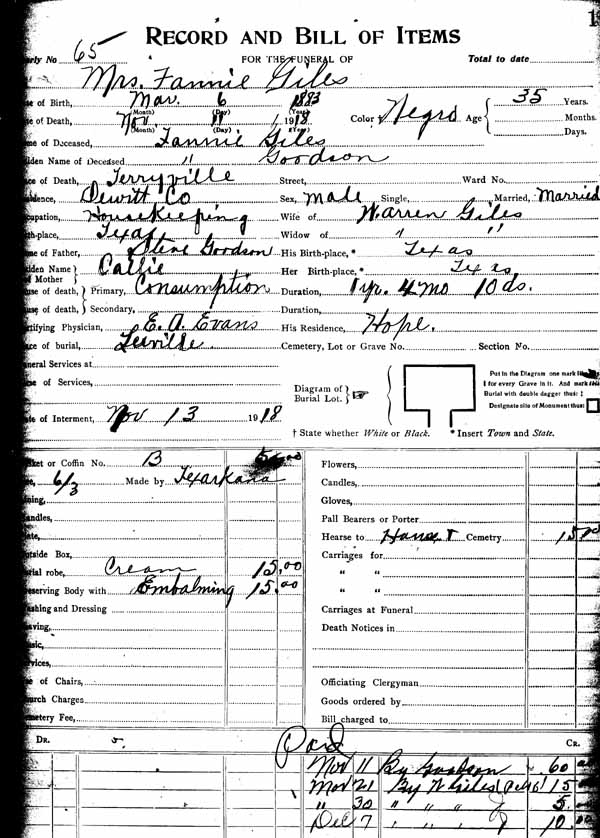 1
RECORD AND BILL OF ITEMS
rly No 65 FOR THE FUNERAL OF Total to date
Mrs. Fannie Giles
e of Birth, Mar. 6 1883
(Month) (Day) (Year)
e of Death, Nov. 11 1918 Color Negro Age 35 Years.
(Month) (Day) (Year) Months.
Days.
me of Deceased, Fannie Giles
iden Name of Deceased " Goodson
ce of Death, Terryville Street, Ward No.
idence, Dewitt Co Sex, male Single, Married, Married
cupation, Housekeeping Wife of Warren Giles
th-place, Texas Widow of " "
me of Father, Steve Goodson His Birth-place, * Texas
iden Name of Mother Callie Her Birth-place, * Texas
use of death, Primary, Consumption Duration, 1 yr. 4 mo 10 ds.
use of death, Secondary, Duration,
rtifying Physician, E. A. Evans His Residence, Hope.
ce of burial, Cemetery, Lot or Grave No. Section No.
neral Services at
me of Services, Diagram of Burial Lot. Put in the Diagram one mark
for every Grave in it. And mark this
Burial with double dagger thus: ‡
Designate site of Monument thus:
te of Interment, Nov 13 1918
† State whether White or Black. * Insert Town and State.
sket or Coffin No. B Flowers,
6/3 Made by Texarkana Candles,
ning, Gloves,
andles, Pall Bearers or Porter
ate, Hearse to Cemetry 15 00
utside Box, Carriages for
rial robe, Cream 15.00 " "
eserving Body with Embalming 15.00 " "
ashing and Dressing Carriages at Funeral
aving, Death Notices in
usic,
rvices,
e of Chairs, Officiating Clergyman
urch Charges Goods ordered by
metery Fee, Bill charged to
DR. Paid CR.
Nov 11 By Goodson 60
Nov 21 By W Giles 15
" 30 " " " 5.00
Dec 7 " " " 10.00